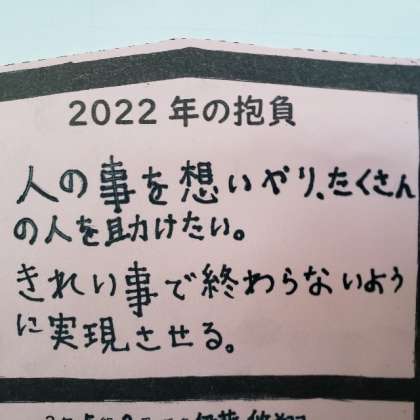 2022年の抱負
人の事を想いやり、たくさん
の人を助けたい。
きれい事で終わらないよう
に実現させる。